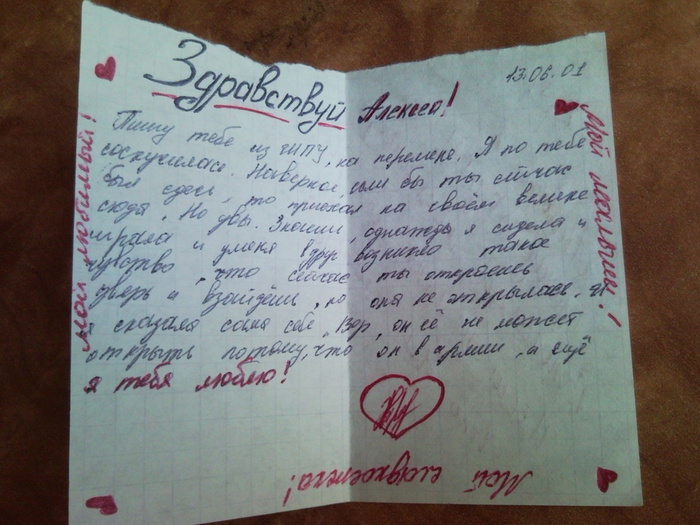 13.06.01
Здравствуй Алскеса!
Пишу тебе из ГИПУ, на перемене. Я по тебе
соскучилась. Наверное, если бы ты сейчас
был здесь, то приехал на своём велике
сюда. Но увы. Знаешь, однажды я сидела и
играла и уменя вдруг возникло такое
чувство, что сейчас ты откроешь
дверь и взойдёшь, но она не открылась, и
я сказала сама себе, Вер, он её не может
открыть потому, что он в армии, и ещё
я тебя люблю!
Мой любимый!
Мой мальчик!
Мой сладкоежка!